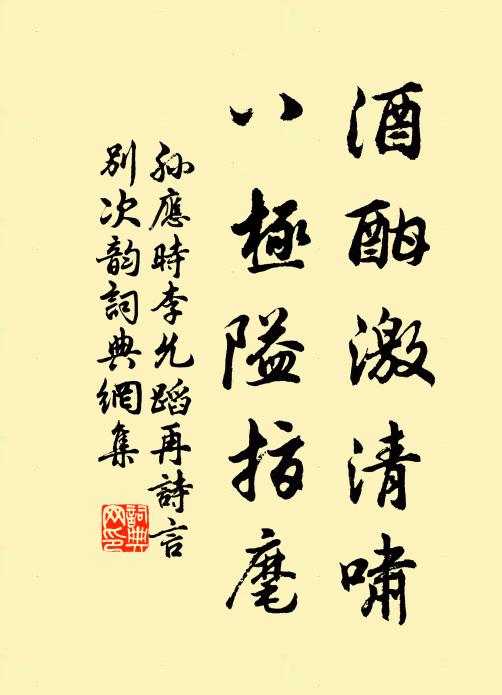 酒酣激清嘯
八極隘指麾
孫應時李允蹈再詩言
別次韵詞典網集
詞典
网印